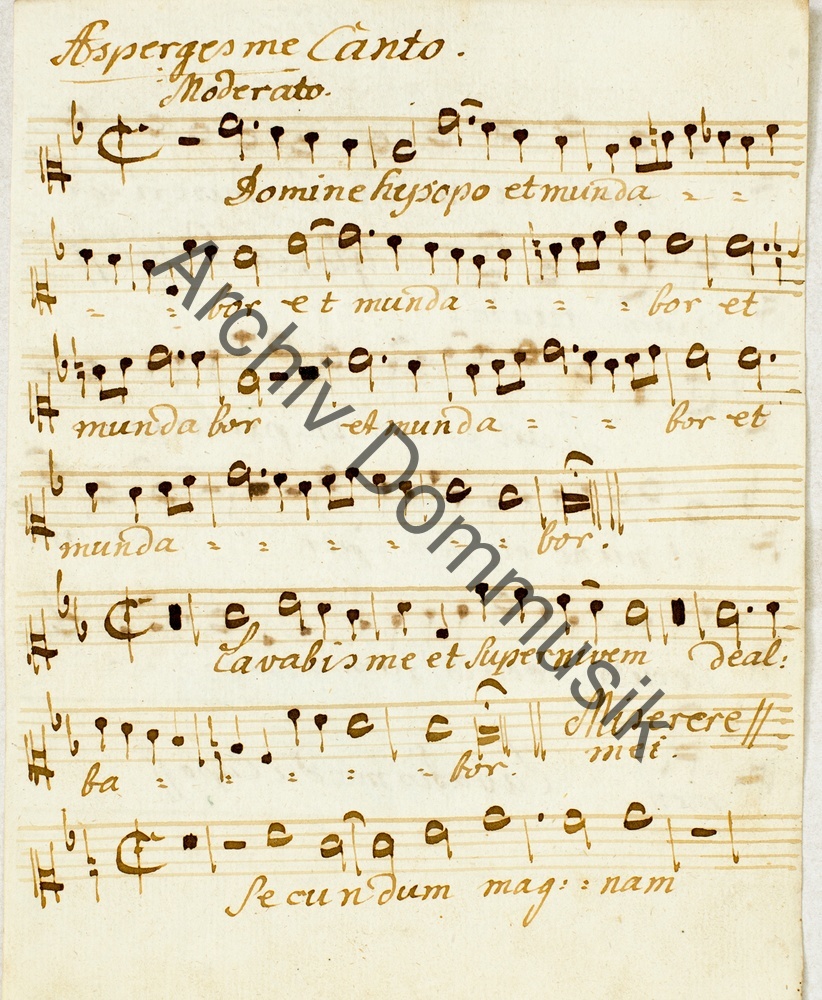 Asperges me Canto.
Moderato.
Domine hysopo et munda
bor et munda bor et
munda bor et munda bor et
munda bor.
Lavabis me et super nivem deal:
ba bor. Miserere
mei.
Secundum mag: nam
Archiv Dommusik